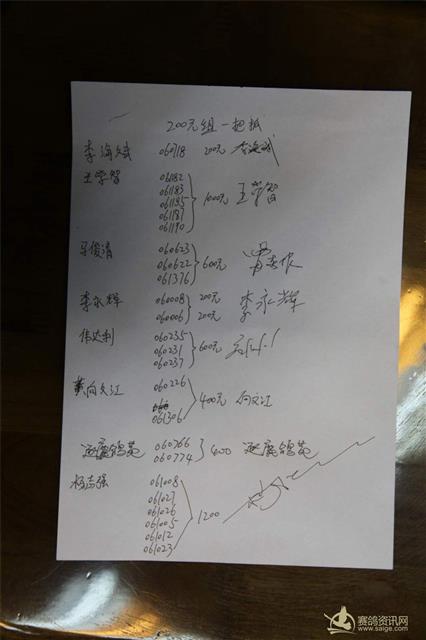 200元组一把抓
李海斌 060718 200元 李海斌
王学智 061182
061183
061185 1000元 王学智
061187
061190
马俊清 060623
060622 600元
061376
李永辉 060008 200元 李永辉
060006 200元
伟达利 060235
060231 600元
060237
向文江 060226
400元 向文江
061306
鸽苑 060766
060774 400 鸽苑
杨志强 061008
061027
061026
061005 1200
061012
061023
赛鸽资讯网
www.saige.com